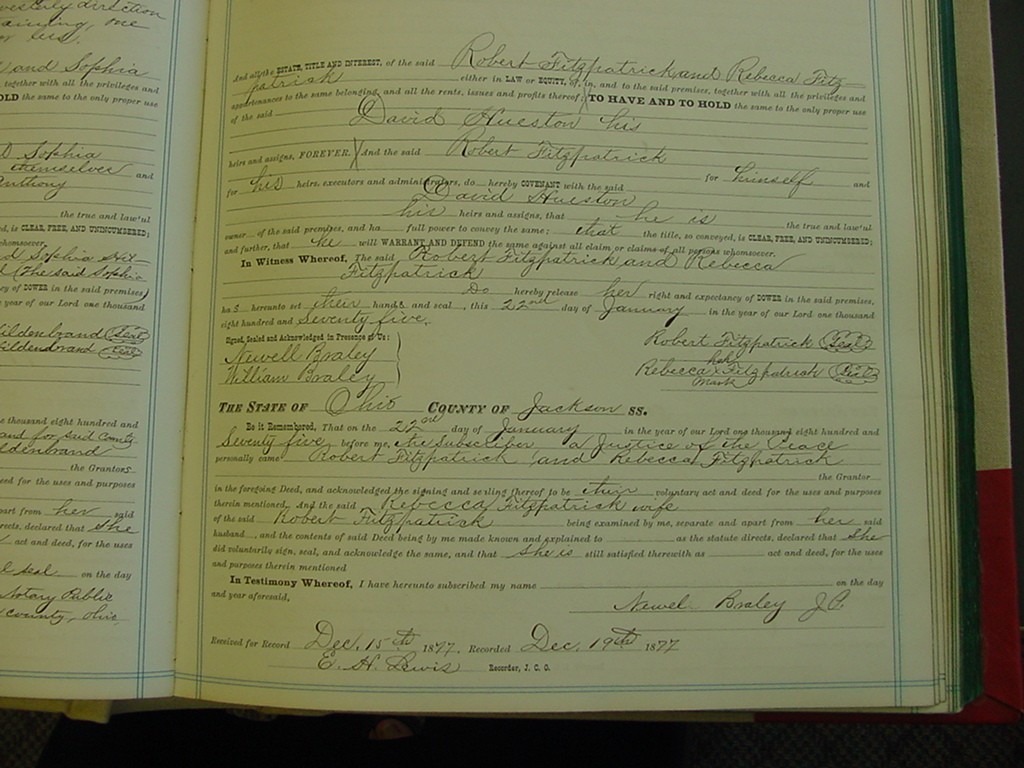 westerly direction
taining, one
or less.
and Sophia
together with all the privileges and
OLD the same to the only proper use
D Sophia
themselves and
Anthony
the true and lawful
d, is CLEAR, FREE, AND UNINCUMBERED;
whomsoever.
d Sophia Hil-
d (The said Sophia
cy of DOWER in the said premises,
e year of our Lord one thousand
ildenbrand (Seal)
ildenbrand (Seal)
e thousand eight hundred and
and for said County
ldenbrand
the Grantors
eed for the uses and purposes
part from her said
rects, declared that she
act and deed, for the uses
l seal on the day
Notary Public
County, Ohio,
And all the ESTATE, TITLE AND INTEREST, of the said Robert Fitzpatrick and Rebecca Fitz-
patrick either in LAW or EQUITY, of, in, and to the said premises, together with all the privileges and
appurtenances to the same belonging, and all the rents, issues and profits thereof; TO HAVE AND TO HOLD the same to the only proper use
of the said David Hueston his
heirs and assigns, FOREVER. And the said Robert Fitzpatrick
for himself and
for his heirs, executors and administrators, do hereby COVENANT with the said
David Hueston
his heirs and assigns, that he is the true and lawful
owner of the said premises, and ha full power to convey the same; that the title, so conveyed, is CLEAR, FREE, AND UNINCUMBERED;
and further, that he will WARRANT AND DEFEND the same against all claim or claims of all persons whomsoever.
In Witness Whereof, The said Robert Fitzpatrick and Rebecca
Fitzpatrick
Do hereby release her right and expectancy of DOWER in the said premises,
ha S hereunto set their hands and seal, this 22nd day of January in the year of our Lord one thousand
eight hundred and Seventy five.
Signed, Sealed and Acknowledged in Presence of Us:
Newell Braley
William Braley
Robert Fitzpatrick (Seal)
her
Rebecca x Fitzpatrick (Seal)
mark
THE STATE OF Ohio COUNTY OF Jackson SS.
Be it Remembered, That on the 22nd day of January in the year of our Lord one thousand eight hundred and
Seventy five before me, the subscriber a Justice of the Peace
personally came Robert Fitzpatrick and Rebecca Fitzpatrick
the Grantor
in the foregoing Deed, and acknowledged the signing and sealing thereof to be their voluntary act and deed for the uses and purposes
therein mentioned. And the said Rebecca Fitzpatrick wife
of the said Robert Fitzpatrick being examined by me, separate and apart from her said
husband, and the contents of said Deed being by me made known and explained to as the statute directs, declared that She
did voluntarily sign, seal, and acknowledge the same, and that She is still satisfied therewith as act and deed, for the uses
and purposes therein mentioned
In Testimony Whereof, I have hereunto subscribed my name on the day
and year aforesaid,
Newel Braley J.P.
Received for Record Dec. 15th 1877. Recorded Dec. 19th 1877
E. H. Lewis Recorder, J. C. O.